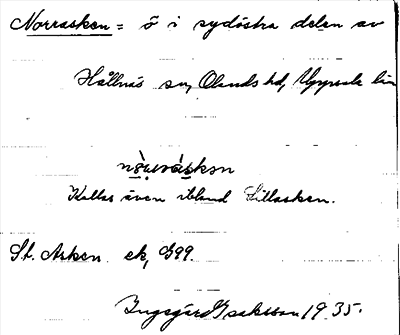 Norrasken = ö i sydöstra delen av
Hållnäs sn, Olands hd, Uppsala län
Kallas även ibland Lillasken.
St. Asken ek, E99.
Ingegärd Isaksson 1935.